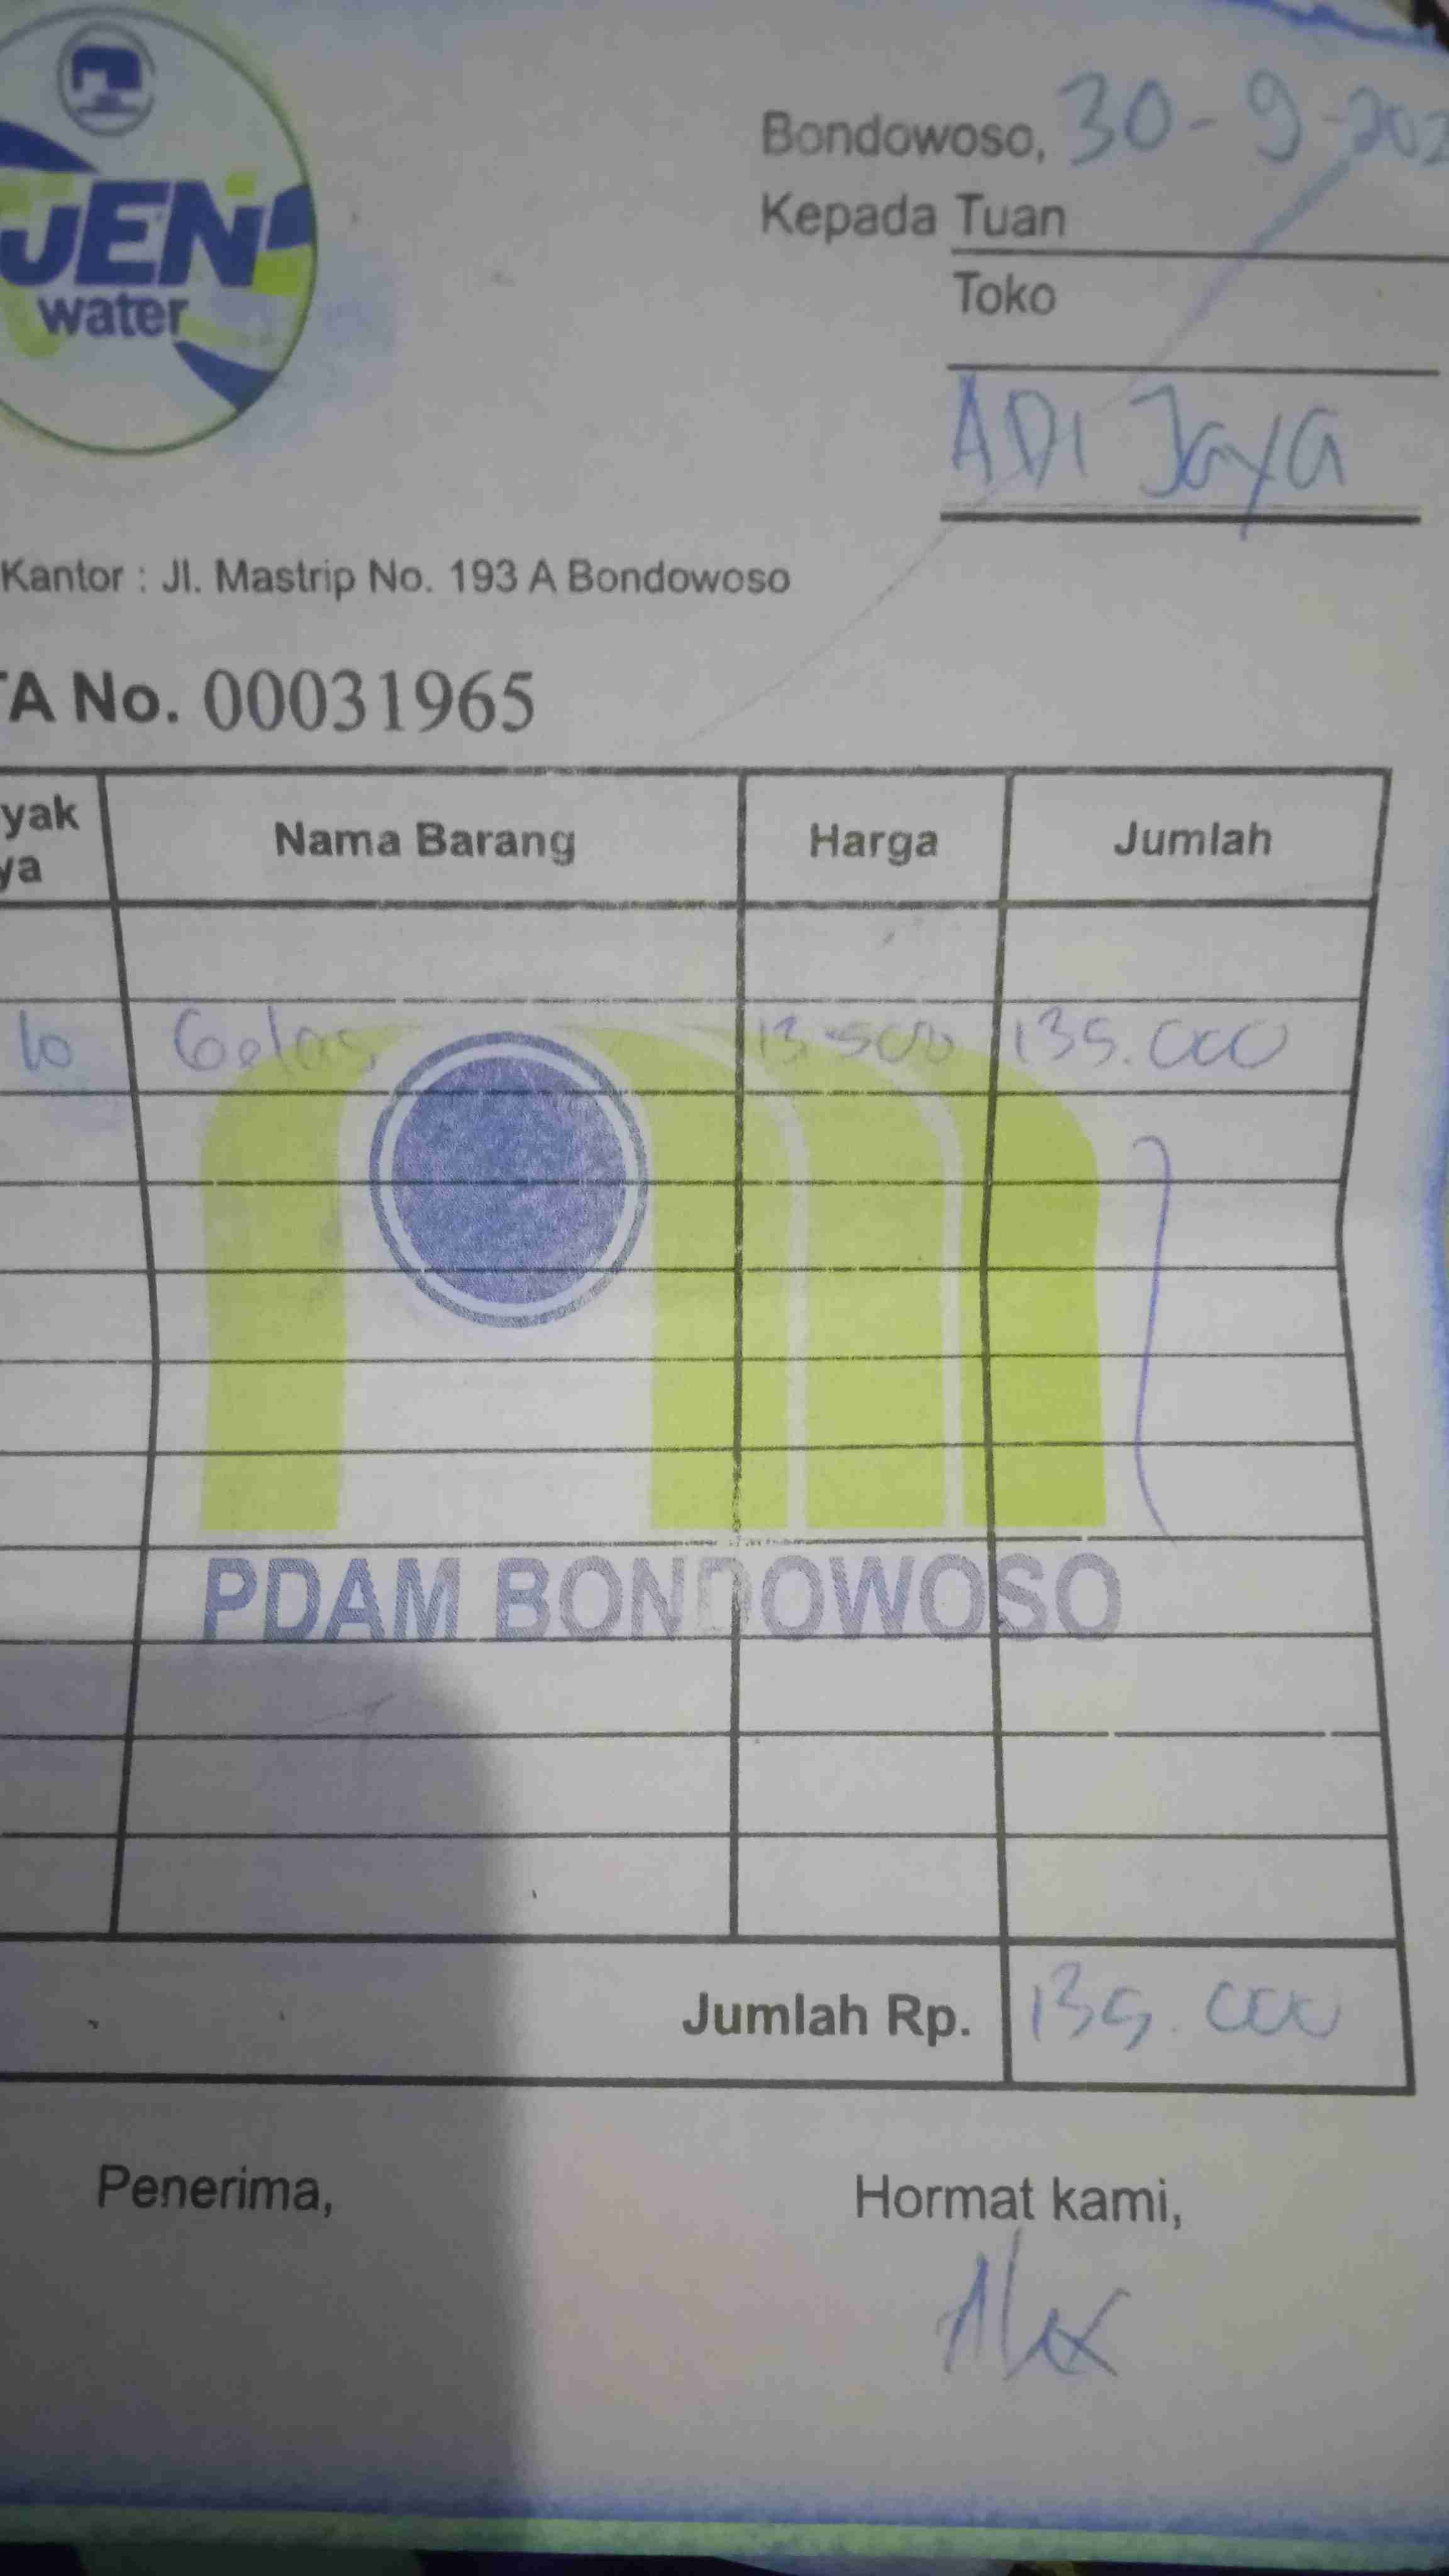 JEN
water
Bondowoso, 30-9-202
Kepada Tuan
Toko
ADI Jaya
Kantor : Jl. Mastrip No. 193 A Bondowoso
TA No. 00031965
yak
ya
Nama Barang Harga Jumlah
10 Gelas 13.500 135.000
PDAM BONDOWOSO
Jumlah Rp. 135.000
Penerima, Hormat kami,
Alex